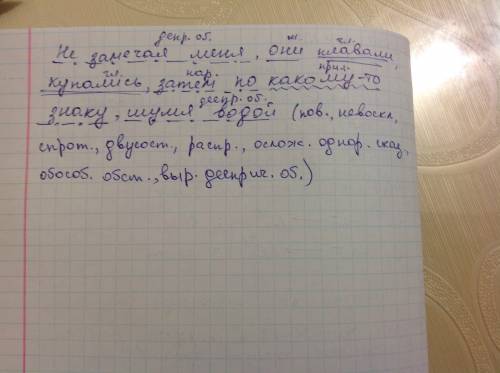 деепр. об.
м. гл.
Не замечая меня, они плавали,
гл. нар. прил.
купались, затем по какому-то
деепр. об.
знаку, шумя водой (пов., невоскл,
спрот., двусост., распр., ослож. однор. сказ,
обособ. обст., выр. дееприч. об.)